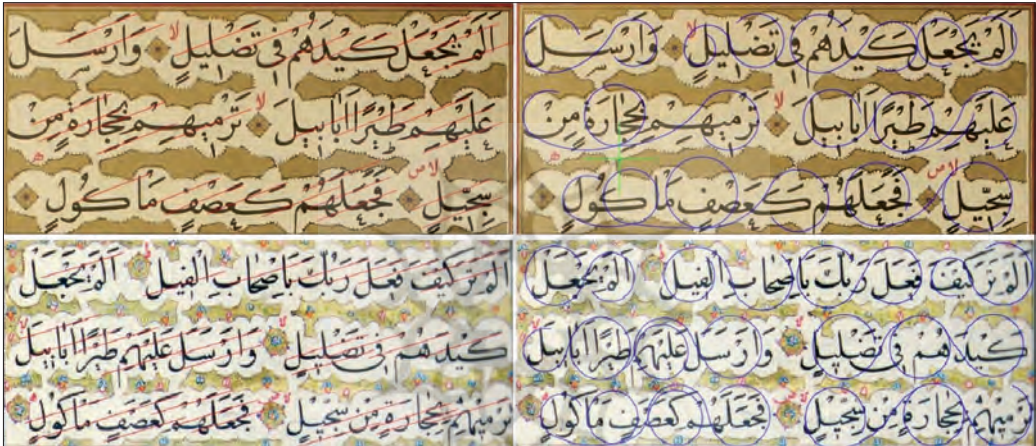 اَلَمْ يَجْعَلْ كَيْدَهُمْ فِي تَضْلِيلٍ لا وَاَرْسَلَ
عَلَيْهِمْ طَيْرًا اَبَابِيلَ لا تَرْمِيهِمْ بِحِجَارَةٍ مِنْ
سِجِّيلٍ لا س فَجَعَلَهُمْ كَعَصْفٍ مَاْكُولٍ
اَلَمْ يَجْعَلْ كَيْدَهُمْ فِي تَضْلِيلٍ لا وَاَرْسَلَ
عَلَيْهِمْ طَيْرًا اَبَابِيلَ لا تَرْمِيهِمْ بِحِجَارَةٍ مِنْ
سِجِّيلٍ لا س فَجَعَلَهُمْ كَعَصْفٍ مَاْكُولٍ
اَلَمْ تَرَ كَيْفَ فَعَلَ رَبُّكَ بِاَصْحَابِ الْفِيلِ اَلَمْ يَجْعَلْ
كَيْدَهُمْ فِي تَضْلِيلٍ وَاَرْسَلَ عَلَيْهِمْ طَيْرًا اَبَابِيلَ
تَرْمِيهِمْ بِحِجَارَةٍ مِنْ سِجِّيلٍ فَجَعَلَهُمْ كَعَصْفٍ مَاْكُولٍ
اَلَمْ تَرَ كَيْفَ فَعَلَ رَبُّكَ بِاَصْحَابِ الْفِيلِ اَلَمْ يَجْعَلْ
كَيْدَهُمْ فِي تَضْلِيلٍ وَاَرْسَلَ عَلَيْهِمْ طَيْرًا اَبَابِيلَ
تَرْمِيهِمْ بِحِجَارَةٍ مِنْ سِجِّيلٍ فَجَعَلَهُمْ كَعَصْفٍ مَاْكُولٍ